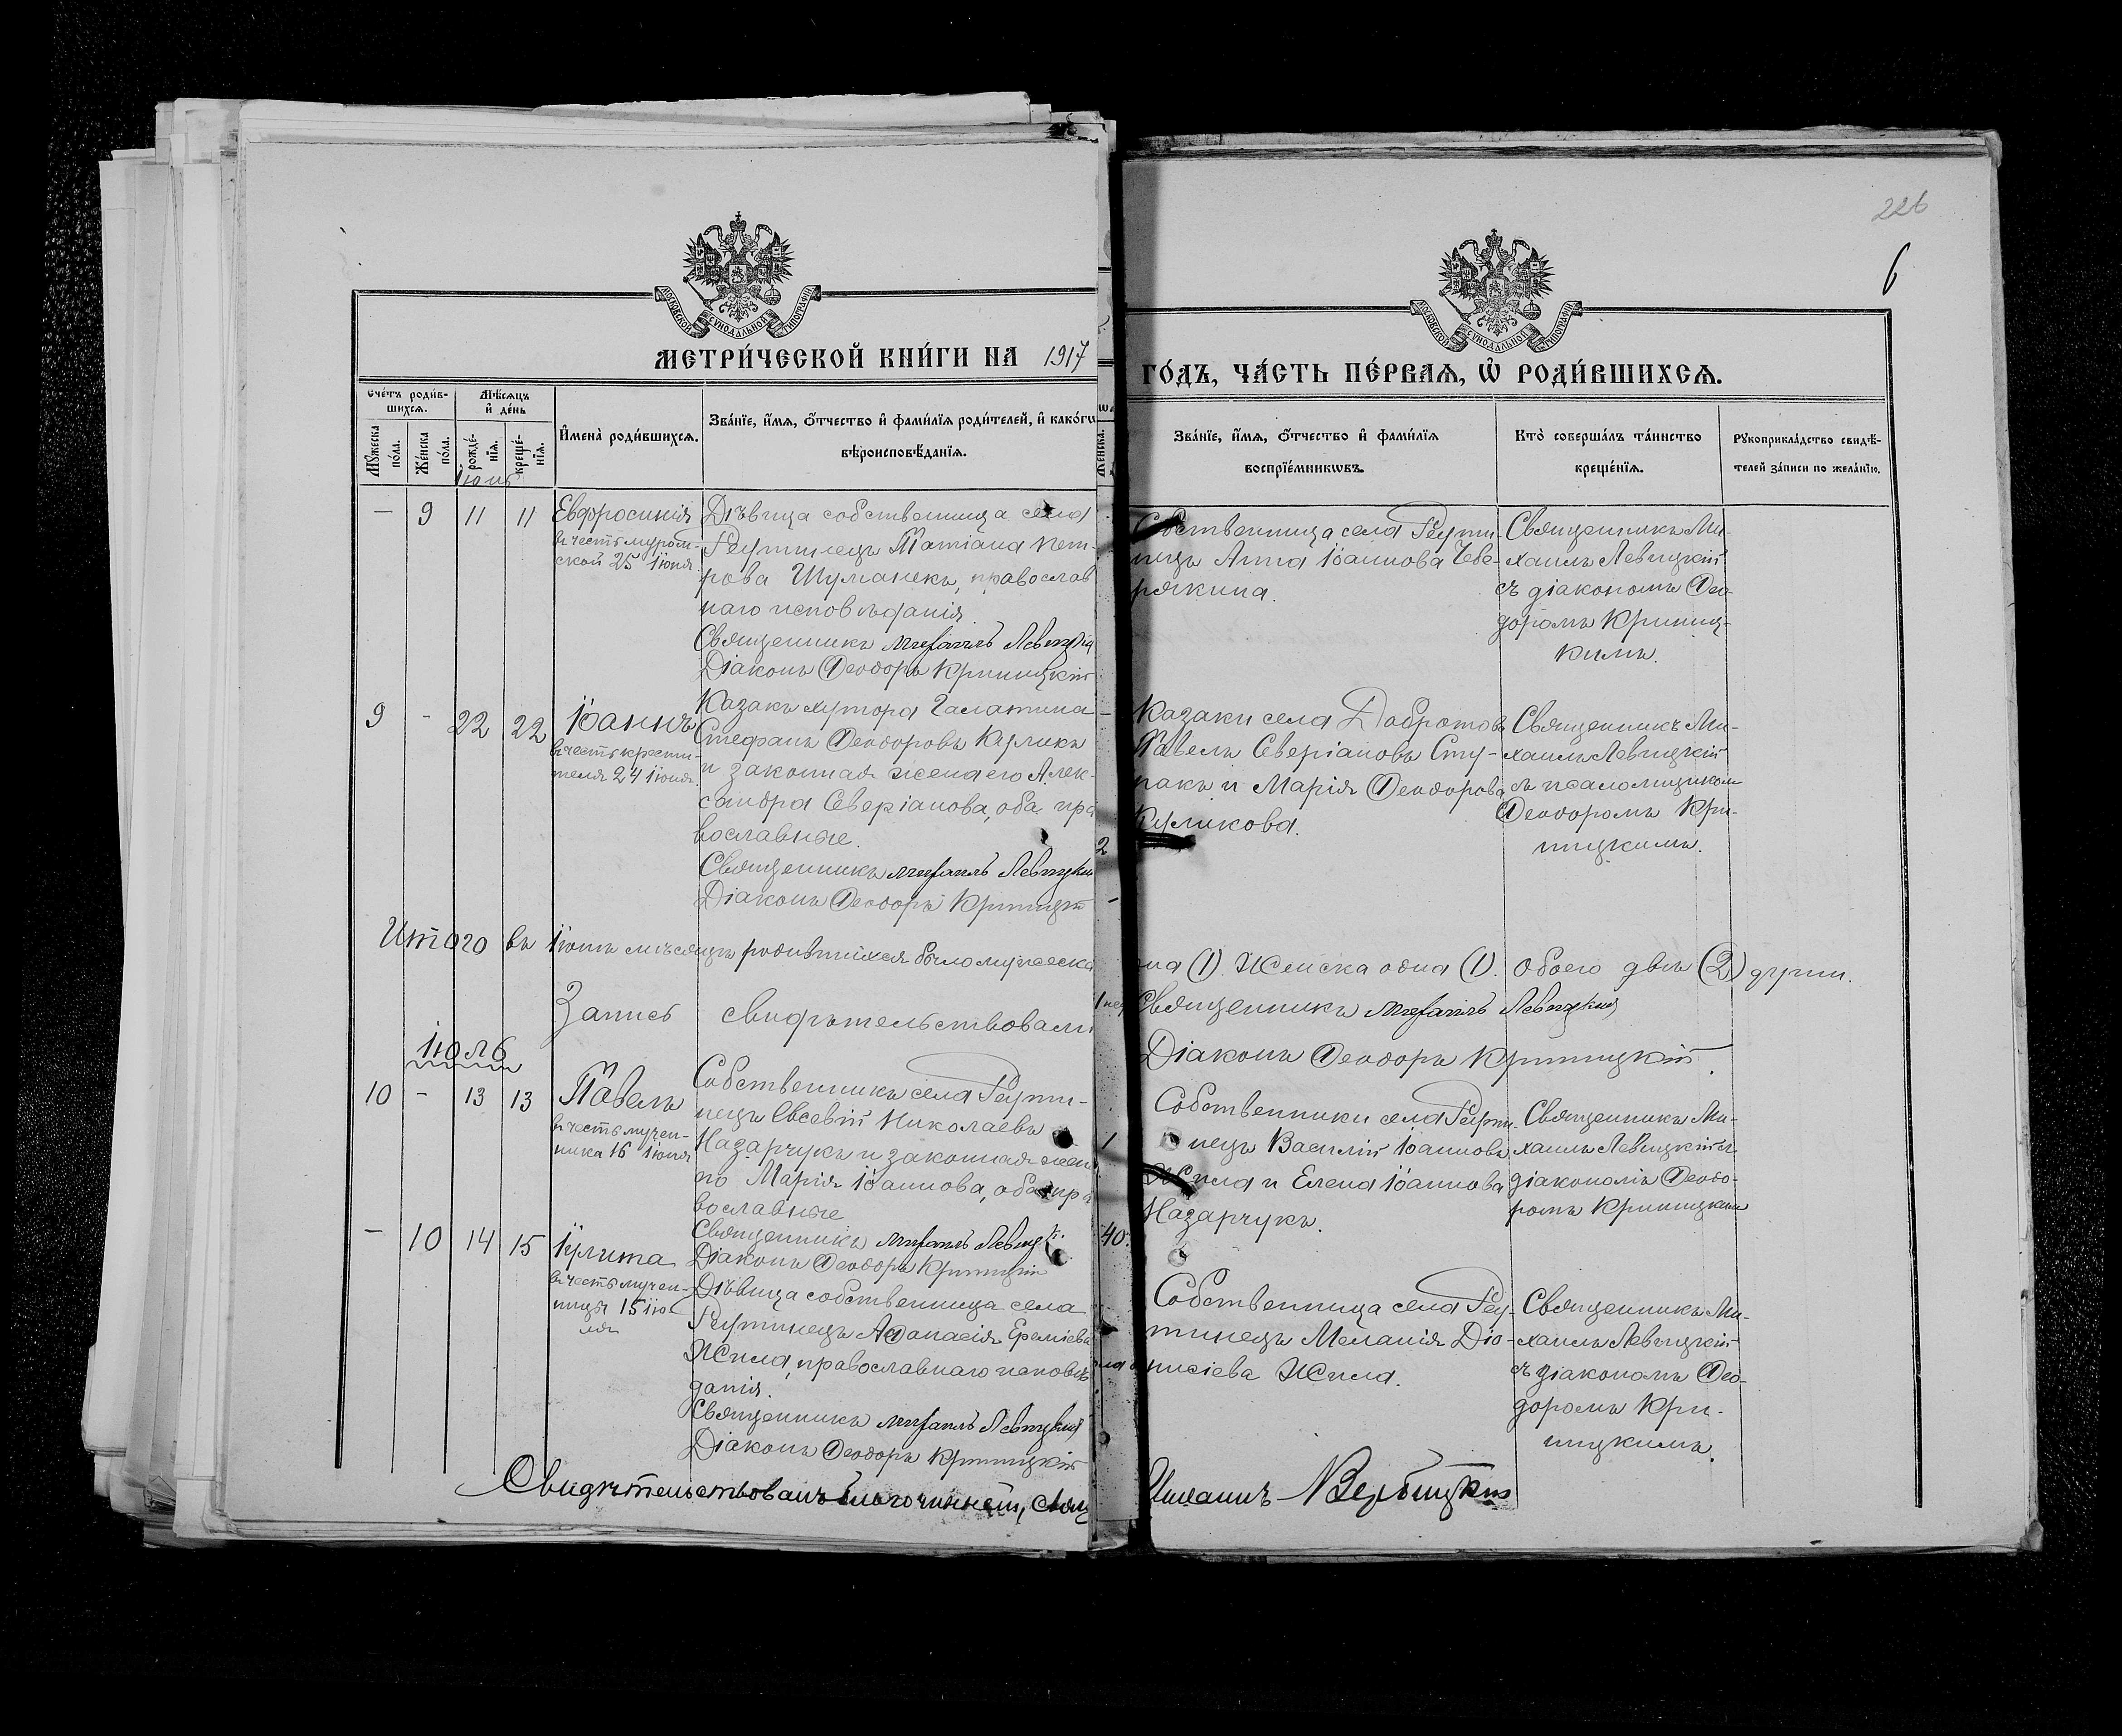 226
6
МОСКОВСКОЙ СѴНОДАЛЬНОЙ ТИПОГРАФІИ
МОСКОВСКОЙ СѴНОДАЛЬНОЙ ТИПОГРАФІИ
МЕТРИ́ЧЕСКОЙ КНИ́ГИ НА 1917
ГО́ДЪ, ЧА́СТЬ ПЕ́РВАЯ, Ѡ РОДИ́ВШИХСЯ.
Сче́тъ роди́в-
шихся.
Мѣ́сяцъ
и де́нь
Мꙋ́жеска
по́ла.
Же́нска
по́ла.
рожде́-
нїя.
креще́-
нїя.
Имена̀ роди́вшихся.
Зва́нїе, и́мя, о́тчество и фами́лїя роди́телей, и како́гѡ
вѣроисповѣ́данїя.
Зва́нїе, и́мя, о́тчество и фами́лїя
воспрїе́мникѡвъ.
Кто̀ соверша́лъ та́инство
креще́нїя.
Рꙋкоприкла́дство свидѣ́-
телей за́писи по жела́нїю.
Іюнь
— 9 11 11
Евфросинія
въ честь муром-
ской 25 Іюня.
Дѣвица собственница села
Реутинецъ Татіана Пет-
рова Шуманекъ, православ
наго исповѣданія.
Священникъ Михаилъ Левицкій
Діаконъ Ѳеодоръ Криницкій
Собственница села Реути-
нецъ Анна Іоаннова Чеве-
рякина.
Священникъ Ми-
хаилъ Левицкій
съ діакономъ Ѳео-
доромъ Криниц-
кимъ.
9 - 22 22
Іоаннъ
въ честь крести-
теля 24 Іюня.
Казакъ хутора Галатина
Стефанъ Ѳеодоровъ Куликъ
и законная жена его Алек-
сандра Северіанова, оба пра
вославные.
Священникъ Михаилъ Левицкій
Діаконъ Ѳеодоръ Криницкій
Казаки села Добротова
Павелъ Северіановъ Сту-
пакъ и Марія Ѳеодорова
Куликова.
Священникъ Ми-
хаилъ Левицкій
съ псаломщикомъ
Ѳеодоромъ Кри-
ницкимъ.
Итого въ Іюнѣ мѣсяцѣ родившихся было мужеска
на (1). Женска одна (1). Обоего двѣ (2) души.
Запись свидѣтельствовали
Священникъ Михаилъ Левицкій
Діаконъ Ѳеодоръ Криницкій.
Іюль
10 - 13 13
Павелъ
въ честь мучен-
ника 16 Іюля
Собственникъ села Реути-
нецъ Евсевій Николаевъ
Назарчукъ и законная жена
го Марія Іоаннова, оба пра
вославные
Священникъ Михаилъ Левицкій
Діаконъ Ѳеодоръ Криницкій
Собственники села Реути-
нецъ Василій Іоанновъ
Жила и Елена Іоаннова
Назарчукъ.
Священникъ Ми-
хаилъ Левицкій съ
діакономъ Ѳеодо-
ромъ Криницкимъ
— 10 14 15
Іулита
въ честь мучен-
ницы 15 Ію-
ля
Дѣвица собственница села
Реутинецъ Аѳанасія Ереміева
Жила, православнаго исповѣ
данія.
Священникъ Михаилъ Левицкій
Діаконъ Ѳеодоръ Криницкій
Собственница села Реу-
тинецъ Меланія Діо-
нисіева Жила.
Священникъ Ми-
хаилъ Левицкій
съ діакономъ Ѳео-
доромъ Кри-
ницкимъ.
Свидѣтельствовалъ Благочинный, Свящ
Вербицкій